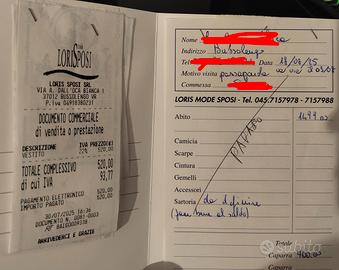 LORISPOSI
LORIS SPOSI SRL
VIA A. DALL'OCA BIANCA 1
37012 BUSSOLENGO VR
P.iva 04918380231
DOCUMENTO COMMERCIALE
di vendita o prestazione
DESCRIZIONE IVA PREZZO(€)
VESTITO 22% 520,00
TOTALE COMPLESSIVO 520,00
di cui IVA 93,77
PAGAMENTO ELETTRONICO 520,00
IMPORTO PAGATO 520,00
30/07/2025 16:36
DOCUMENTO N. 0081-0003
ARRIVEDERCI E GRAZIE
Nome
Indirizzo Bussolengo
Data
Motivo visita
Commessa
LORIS MODE SPOSI - Tel. 045.7157978 - 7157988
Abito 1499.00
Camicia
Scarpe
Cintura
Gemelli
Accessori
Sartoria da definire
PAGATO
Totale
Caparra 400.00
Caparra
subito